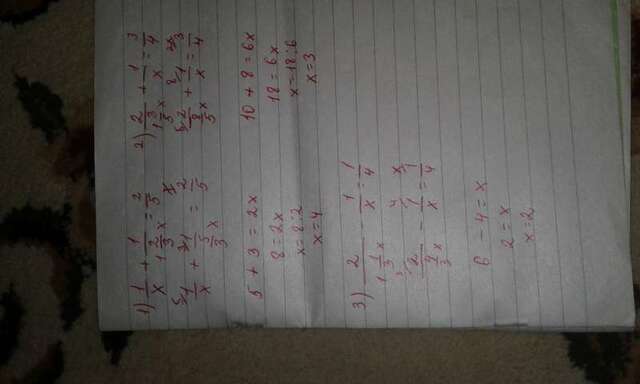 1) 1/x + 1/(1 2/3 x) = 2/5
5/ 1/x + 3/ 1/(5/3 x) = x/ 2/5
5 + 3 = 2x
8 = 2x
x = 8:2
x = 4
2) 2/(1 3/5 x) + 1/x = 3/4
5/ 2/(8/5 x) + 8/ 1/x = 2x/ 3/4
10 + 8 = 6x
18 = 6x
x = 18:6
x = 3
3) 2/(1 1/3 x) - 1/x = 1/4
3/ 2/(4/3 x) - 4/ 1/x = x/ 1/4
6 - 4 = x
2 = x
x = 2